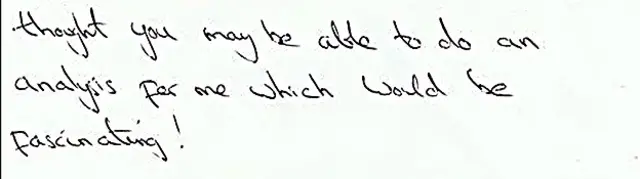 thought you may be able to do an
analysis for me which would be
fascinating!